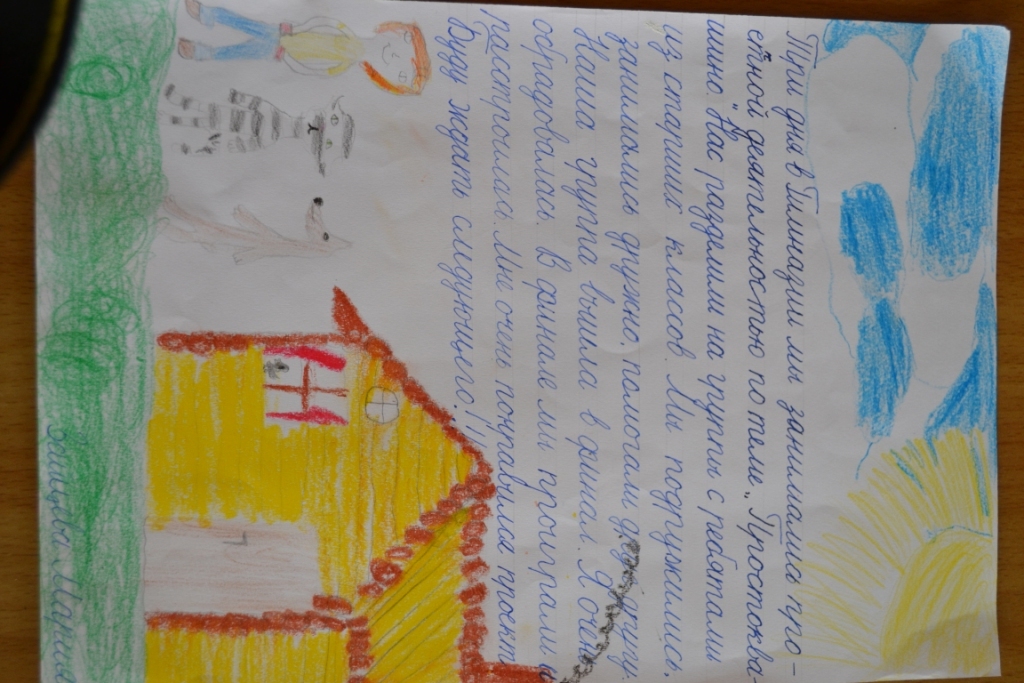 Три дня в Гимназии мы занимались про-
ектной деятельностью по теме „Простоква-
шино" Нас разделили на группы с ребятами
из старших классов. Мы подружились,
занимались дружно, помогали друг другу.
Наша группа вышла в финал. Я очень
обрадовалась. В финале мы проиграли и
расстроились. Мне очень понравился проект.
Буду ждать следующего!!!
Марина